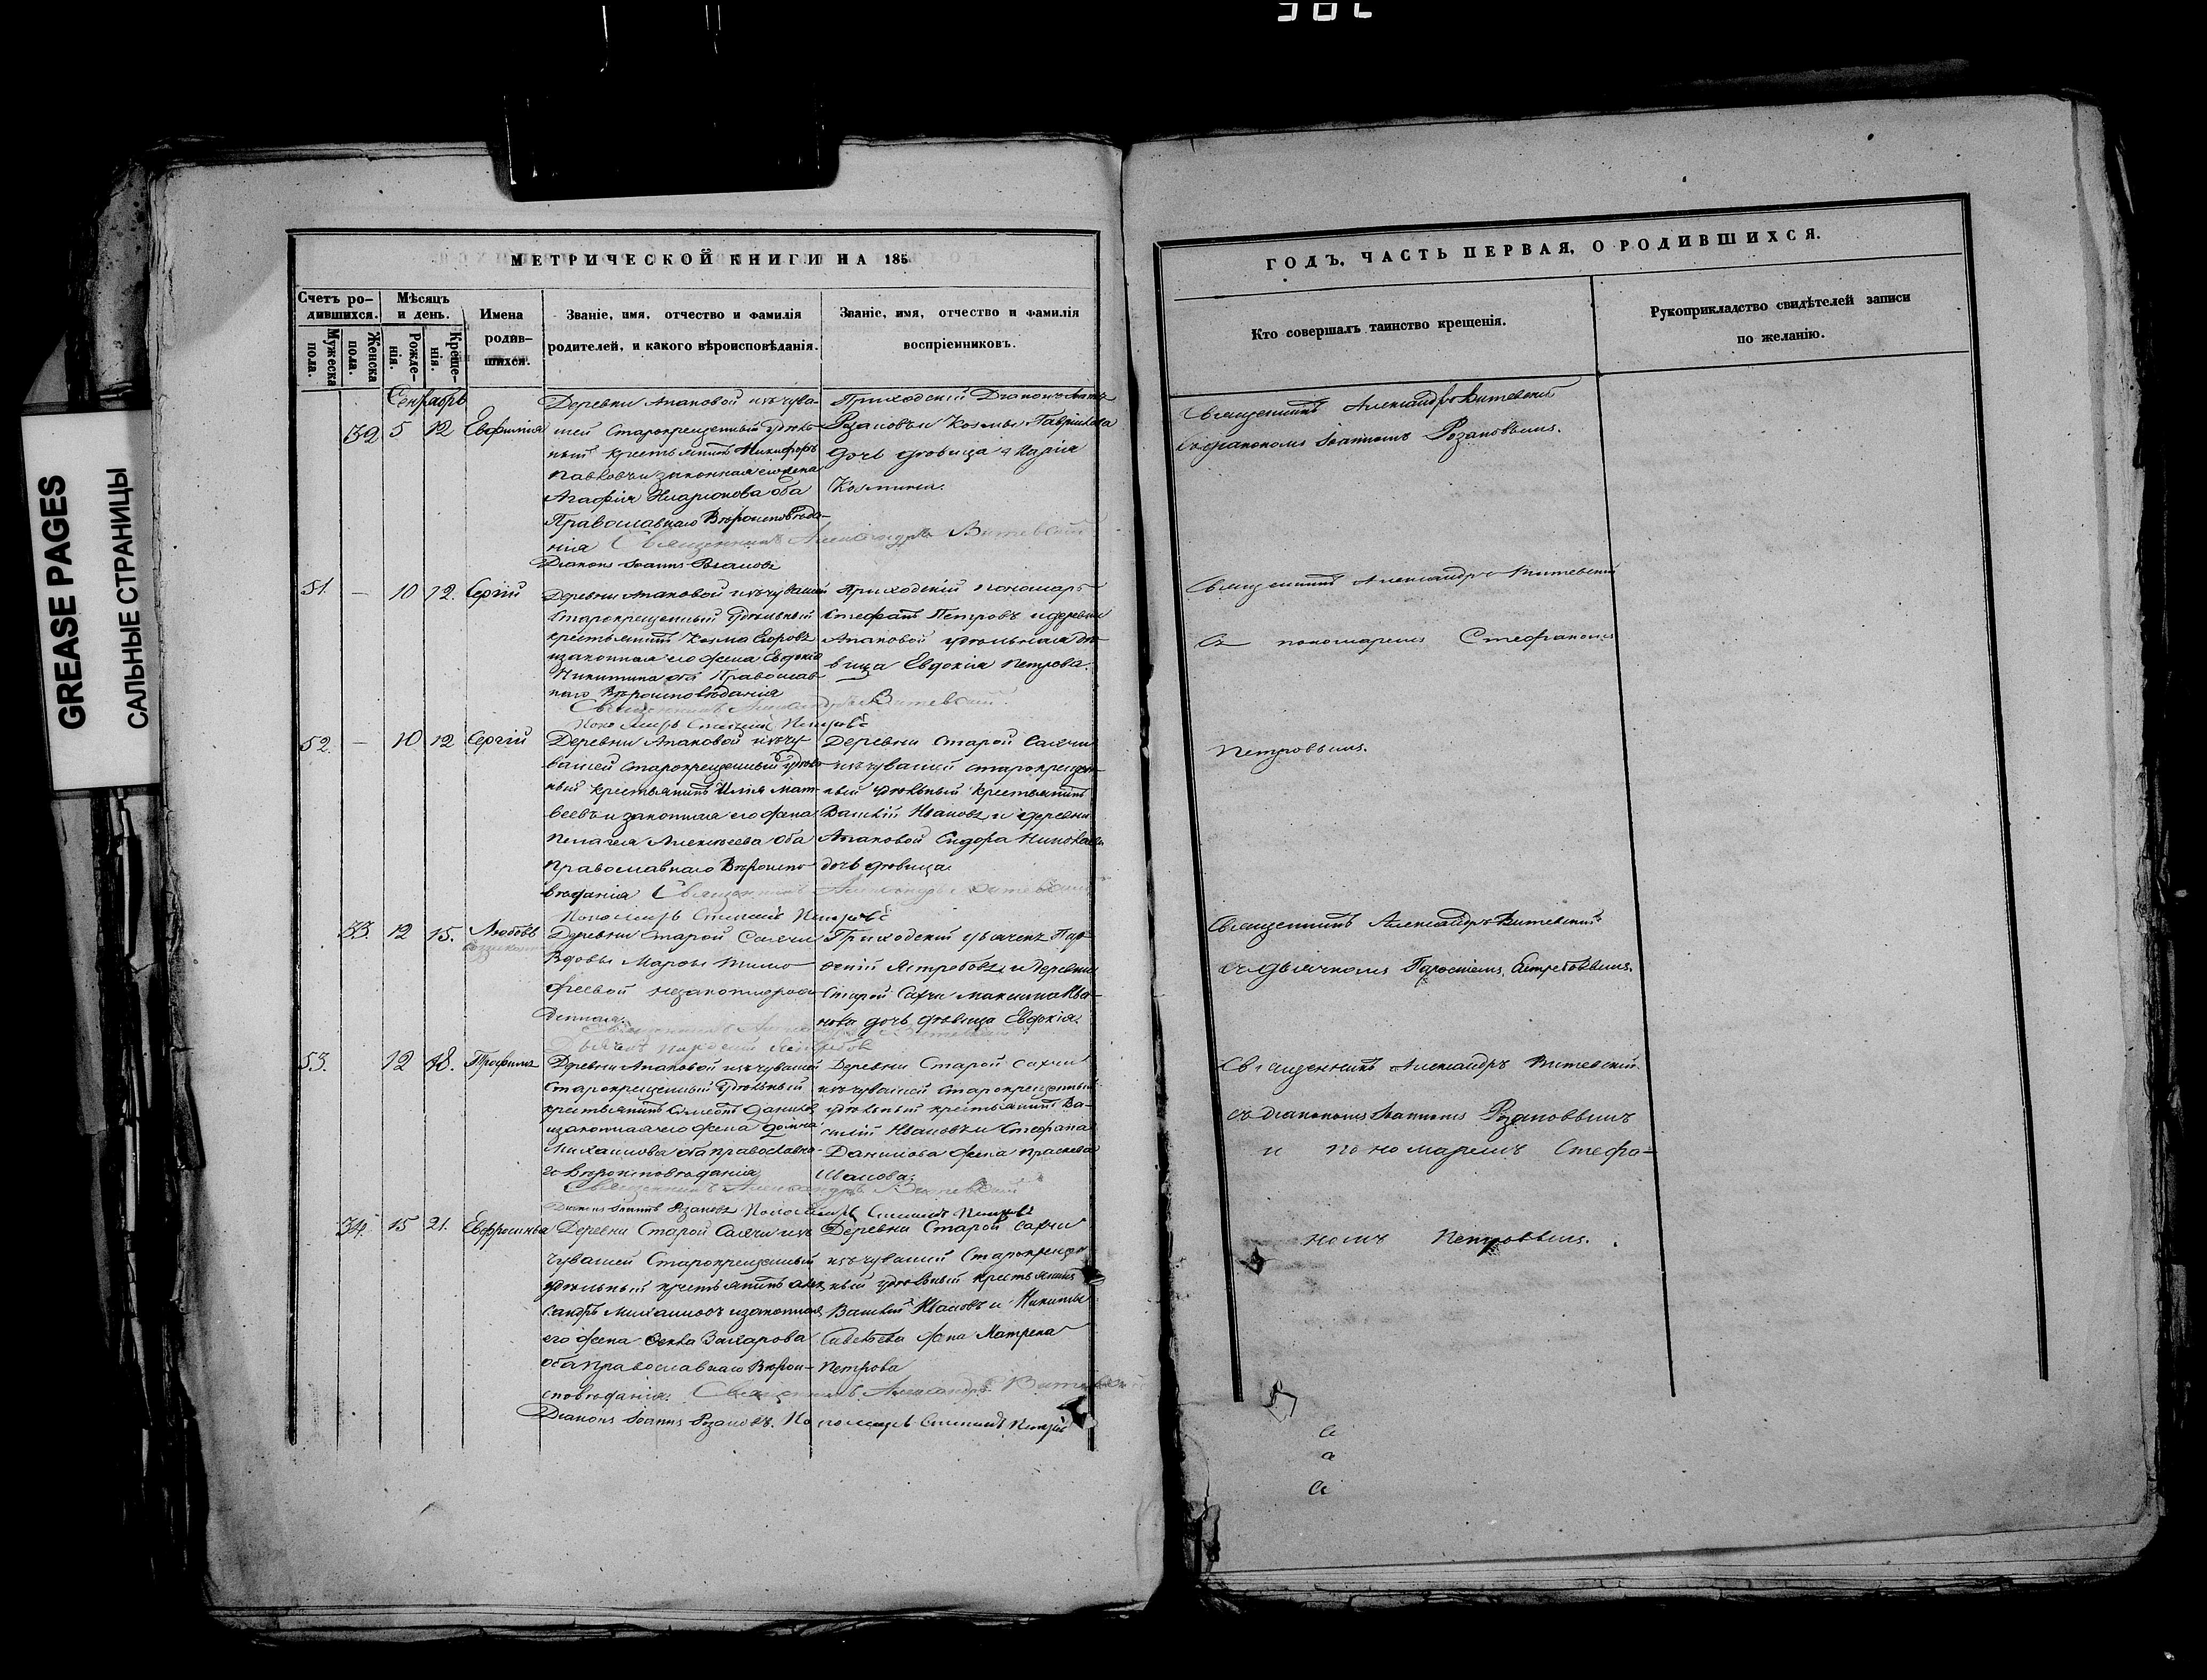 GREASE PAGES
САЛЬНЫЕ СТРАНИЦЫ
МЕТРИЧЕСКОЙ КНИГИ НА 185
Счетъ ро-
дившихся.
Мужеска
пола.
Женска
пола.
Мѣсяцъ
и день.
Рожде-
нія.
Креще-
нія.
Имена
родив-
шихся.
Званіе, имя, отчество и фамилія
родителей, и какого вѣроисповѣданія.
Званіе, имя, отчество и фамилія
воспріенниковъ.
Сентябрь
32 5 12 Евфимія
Деревни Апаковой изъ чува-
шей Старокрещенный удѣль-
ный крестьянинъ Никифоръ
Павловъ и законная его жена
Агафія Иларіонова оба
Православнаго Вѣроисповѣда-
нія Священникъ Александръ Витевскій
Діаконъ Іоаннъ Розановъ
Приходскій Діаконъ
Розановъ и Козмы Гаврилова
дочь дѣвица Марія
Козмина.
51. — 10 12. Сергій
Деревни Апаковой изъ чувашей
Старокрещенный удѣльный
крестьянинъ Козма Егоровъ
и законная его жена Евдокія
Никитина оба Православ-
наго Вѣроисповѣданія
Священникъ Александръ Витевскій.
Пономарь Стефанъ Петровъ
Приходскій пономарь
Стефанъ Петровъ и деревни
Апаковой удѣльная дѣ-
вица Евдокія Петрова.
52. — 10 12 Сергій
Деревни Апаковой изъ чу-
вашей старокрещенный удѣль-
ный крестьянинъ Илія Мат-
веевъ и законная его жена
Пелагея Алексѣева оба
Православнаго Вѣроиспо-
вѣданія Священникъ Александръ Витевскій
Пономарь Стефанъ Петровъ
Деревни Старой Сахчи
изъ чувашей старокрещен-
ный удѣльный крестьянинъ
Василій Ивановъ и деревни
Апаковой Сидора Николаева
дочь дѣвица.
33. 12 15. Любовь
Деревни Старой Сахчи
Вдовы Марѳы Тимо-
феевой незаконнорож-
денная.
Священникъ Александръ Витевскій
Приходскій дьячекъ Пар-
ѳеній Ястребовъ и деревни
Старой Сахчи Максима Ива-
нова дочь дѣвица Евдокія.
53. 12 18. Трофимъ
Деревни Апаковой изъ чувашей
Старокрещенный Удѣльный
крестьянинъ Симеонъ Даниловъ
и законная его жена Домна
Михаилова оба православна-
го Вѣроисповѣданія
Священникъ Александръ Витевскій
Діаконъ Іоаннъ Розановъ Пономарь Стефанъ Петровъ
Деревни Старой Сахчи
изъ чувашей старокрещенный
удѣльный крестьянинъ Ва-
силій Ивановъ и Стефана
Данилова жена Праскева
Иванова.
34. 15 21. Евфросинья
Деревни Старой Сахчи изъ
чувашей Старокрещенный
удѣльный крестьянинъ Алек-
сандръ Михаиловъ и законная
его жена Ѳекла Захарова
оба православнаго Вѣрои-
сповѣданія. Священникъ Александръ Витевскій
Діаконъ Іоаннъ Розановъ. Пономарь Стефанъ Петровъ
Деревни Старой Сахчи
изъ чувашей Старокрещен-
ный удѣльный крестьянинъ
Василій Ивановъ и Никиты
Савельева жена Матрена
Петрова
ГОДЪ, ЧАСТЬ ПЕРВАЯ, О РОДИВШИХСЯ.
Кто совершалъ таинство крещенія.
Рукоприкладство свидѣтелей записи
по желанію.
Священникъ Александръ Витевскій
съ діакономъ Іоанномъ Розановымъ.
Священникъ Александръ Витевскій
съ пономаремъ Стефаномъ
Петровымъ.
Священникъ Александръ Витевскій
съ дьячкомъ Парѳеніемъ Ястребовымъ.
Священникъ Александръ Витевскій
съ діакономъ Іоанномъ Розановымъ
и пономаремъ Стефа-
номъ Петровымъ.